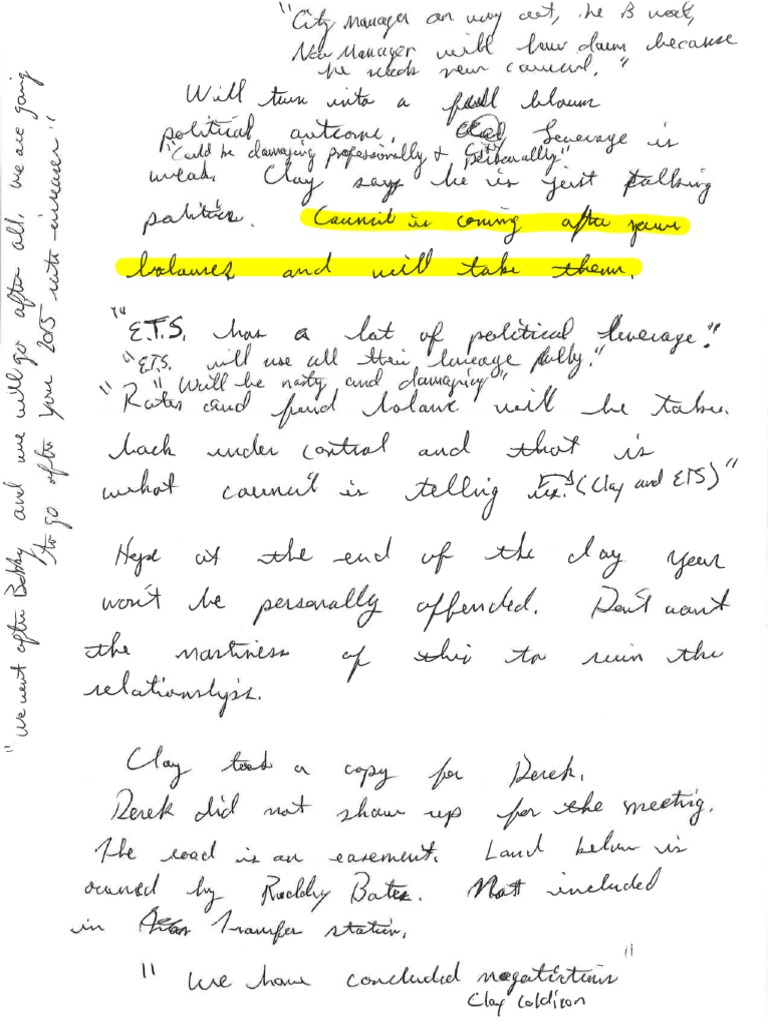 "City manager on way out, he is weak,
New Manager will bow down because
he needs new council."
Will turn into a full blown
political outcome. City Leverage is
"Could be damaging professionally & personally"
weak. Clay says he is just talking
politics. Council is coming after your
balances and will take them.
"E.T.S. has a lot of political leverage."
"ETS. will use all their leverage fully."
"Will be nasty and damaging"
"Rates and fund balance will be taken
back under control and that is
what council is telling us. (Clay and ETS)"
Hope at the end of the day your
won't be personally offended. Don't want
the nastiness of this to ruin the
relationships.
Clay took a copy for Derek.
Derek did not show up for the meeting.
The road is an easement. Land below is
owned by Bates. Not included
in Transfer station.
"We have concluded negotiations"
Clay
"We went after Bobby and we will go after all, we are going
to go after your 2015 rate increases"